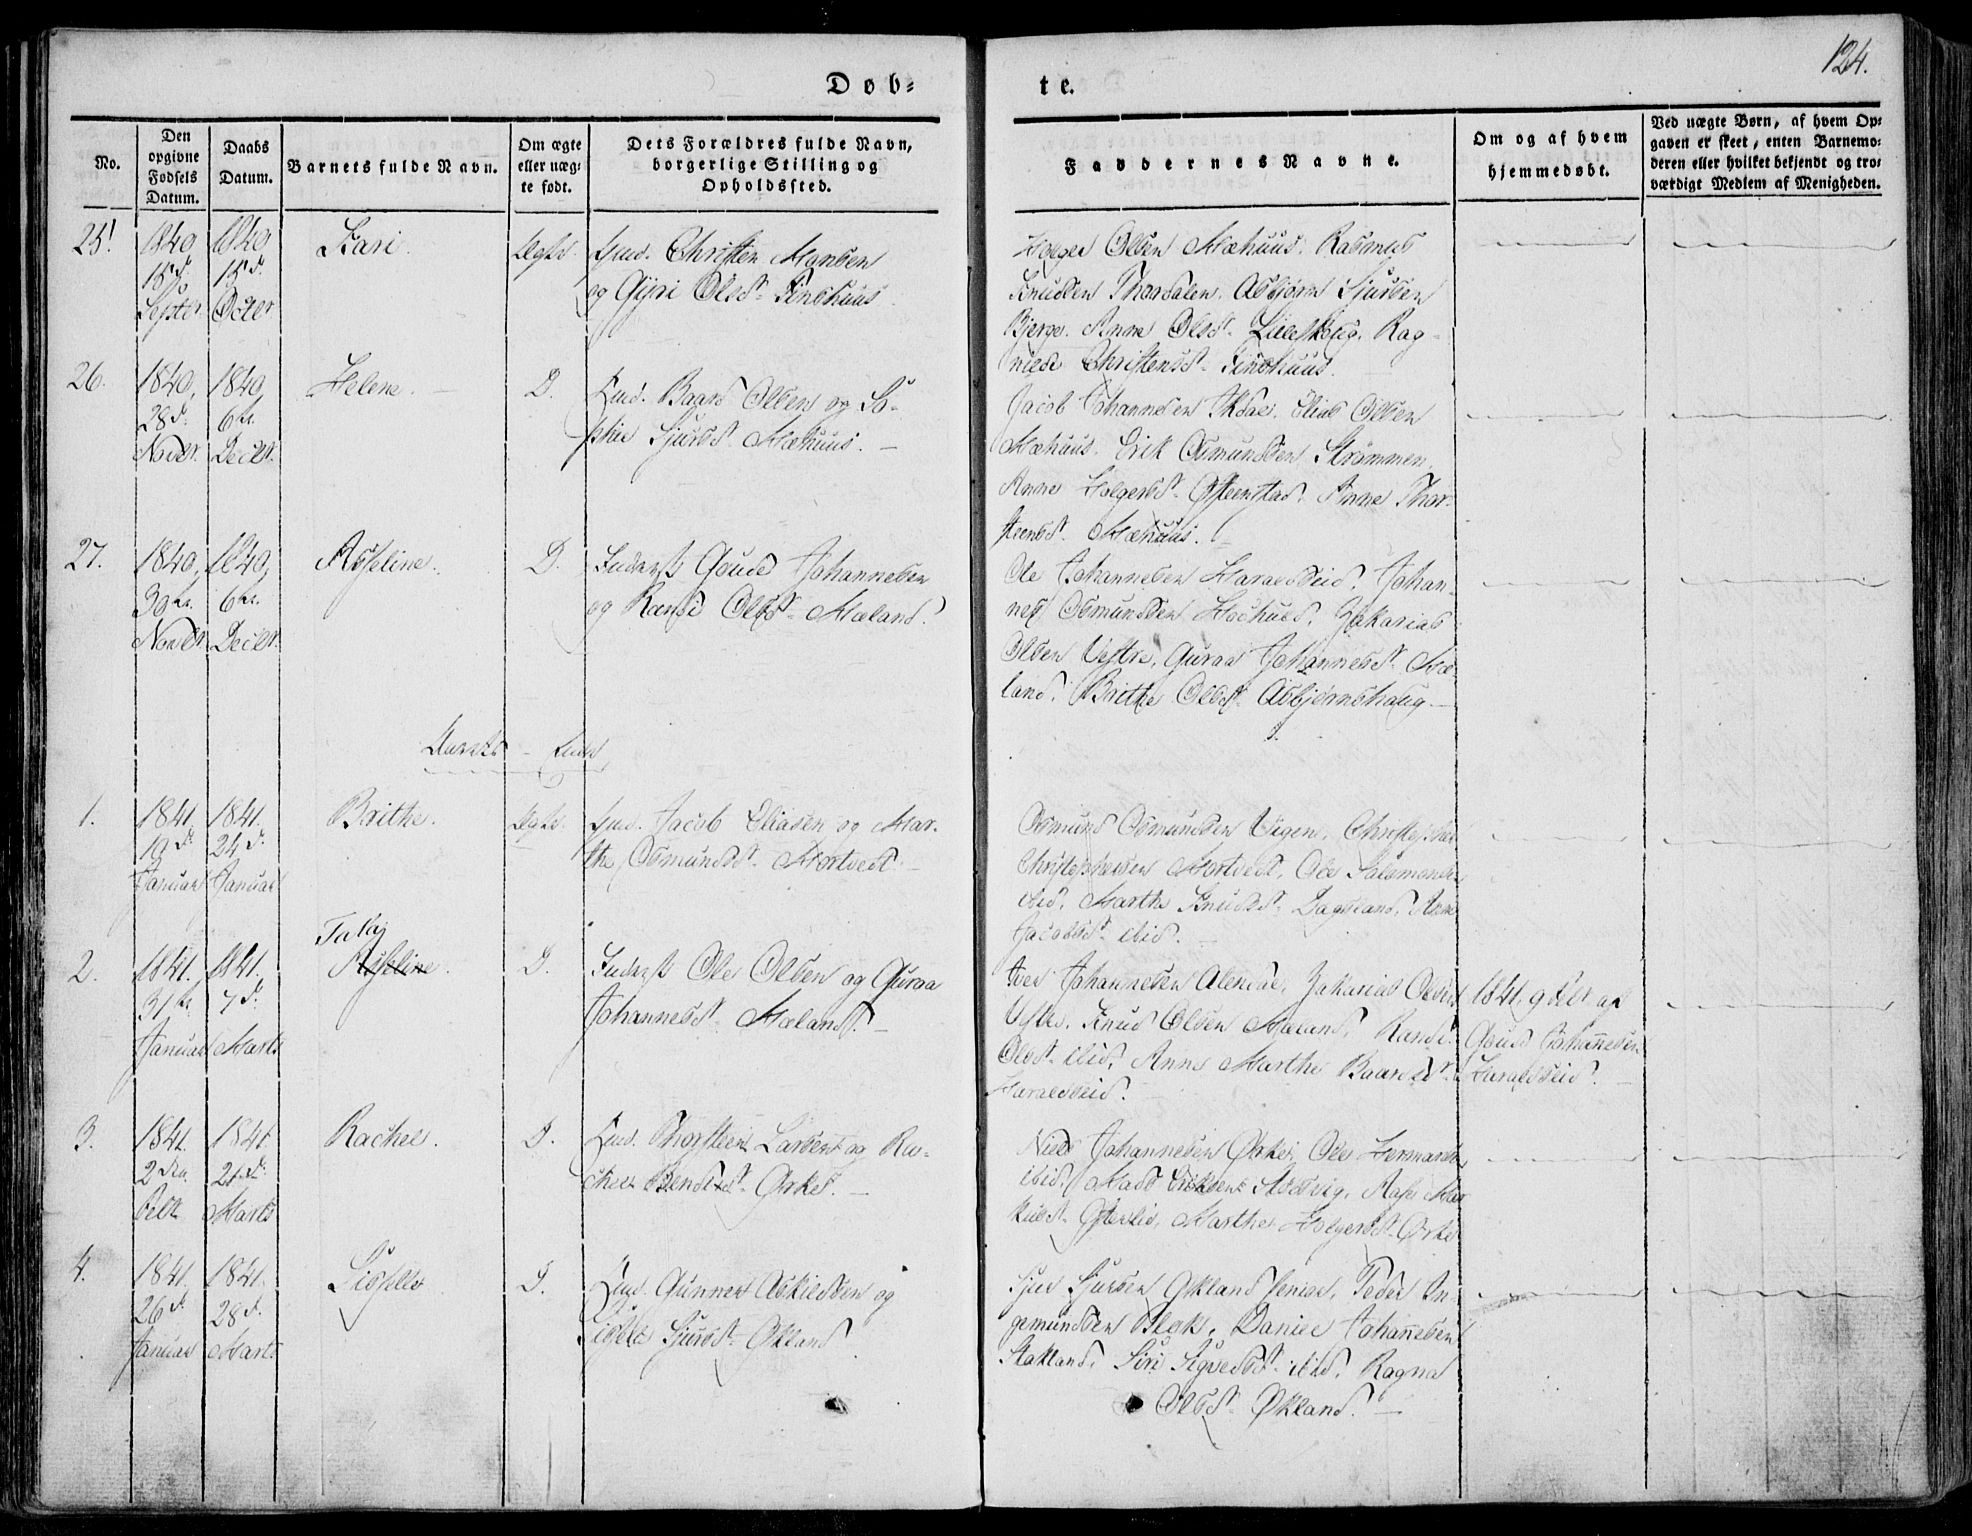 124.
Døb-
te.
No.
Den opgivne Fødsels Datum.
Daabs Datum.
Barnets fulde Navn.
Om ægte eller uægte født.
Dets Forældres fulde Navn, borgerlige Stilling og Opholdssted.
Faddernes Navne.
Om og af hvem hjemmedøbt.
Ved uægte Børn, af hvem Opgaven er skeet, enten Barnemoderen eller hvilket bekjendt og troværdigt Medlem af Menigheden.
25.
1840
15d.
Septer
1840
15d.
Octer
Kari.
Ægte.
Christen Monsen
og Gyri Olsd.
Holger Olsen Mæhuus. Rasmus
Knudsen Thorsdalen. Asbjørn Sjursen
Bjerge. Anne Olsd. Lilleskoug. Rag-
nilde Christensd.
26.
1840,
28d.
Novbr.
1840
6te.
Decbr.
Helene.
D.
Baard Olsen og So-
phie Sjursd. Mæhuus.
Jacob Johannesen Elias Olsen
Mæhuus. Erik Osmundsen Strømmen.
Anne Holgersd. Østeenstad. Anne Thor-
steensd. Mæhuus.
27.
1840,
30te.
Novbr.
1840,
6te.
Decbr.
Asseline.
D.
Inderst Goude Johannesen
og Randi Olsd. Mæland.
Ole Johannesen Haraldseid. Johan-
nes Osmundsen Zakarias
Olsen Vestre. Guraa Johannesd. Mæ-
land. Brithe Olsd. Asbjørnshaug.
1.
1841.
19d.
Januar
1841.
24d.
Januar
Brithe.
Ægte.
Jacob Eliasen og Mar-
the Osmundsd. Mortveit.
Osmund Osmundsen Vigen. Christopher
Christophersen Mortveit. Ole Salomonsen
ibid. Marthe Knudsd. Dagsland. Anne
Jacobsd. ibid.
2.
1841.
31te.
Januar
1841.
7d.
Marts
Taly
Asseline.
D.
Inderst Ole Olsen og Guraa
Johannesd. Mæland.
Iver Johannesen Alendal. Zakarias Olsen
Vestre. Knud Olsen Mæland. Randi
Olsd. ibid. Anne Marthe Baardsd.
Haraldseid.
1841. 9 Febr af
Goude Johannesen
Haraldseid.
3.
1841.
2den
Febr
1841
21d.
Marts
Rachel.
D.
Thorsteen Larsen og Ra-
chel Bendixd. Ørke.
Niels Johannesen Ørke. Ole Hermansen
ibid. Mads Eriksen
Østerlid. Marthe Holgersd. Ørke
4.
1841.
26d.
Januar
1841.
28d.
Marts
Sidselle
D.
Gunner Askildsen og
Sidsele Sjursd. Økland
Sjur Sjursen Økland senior. Peder In-
gemundsen Daniel Johannesen
Stakland. Siri Sigvedsd. ibid. Ragna
Olsd. Økland.